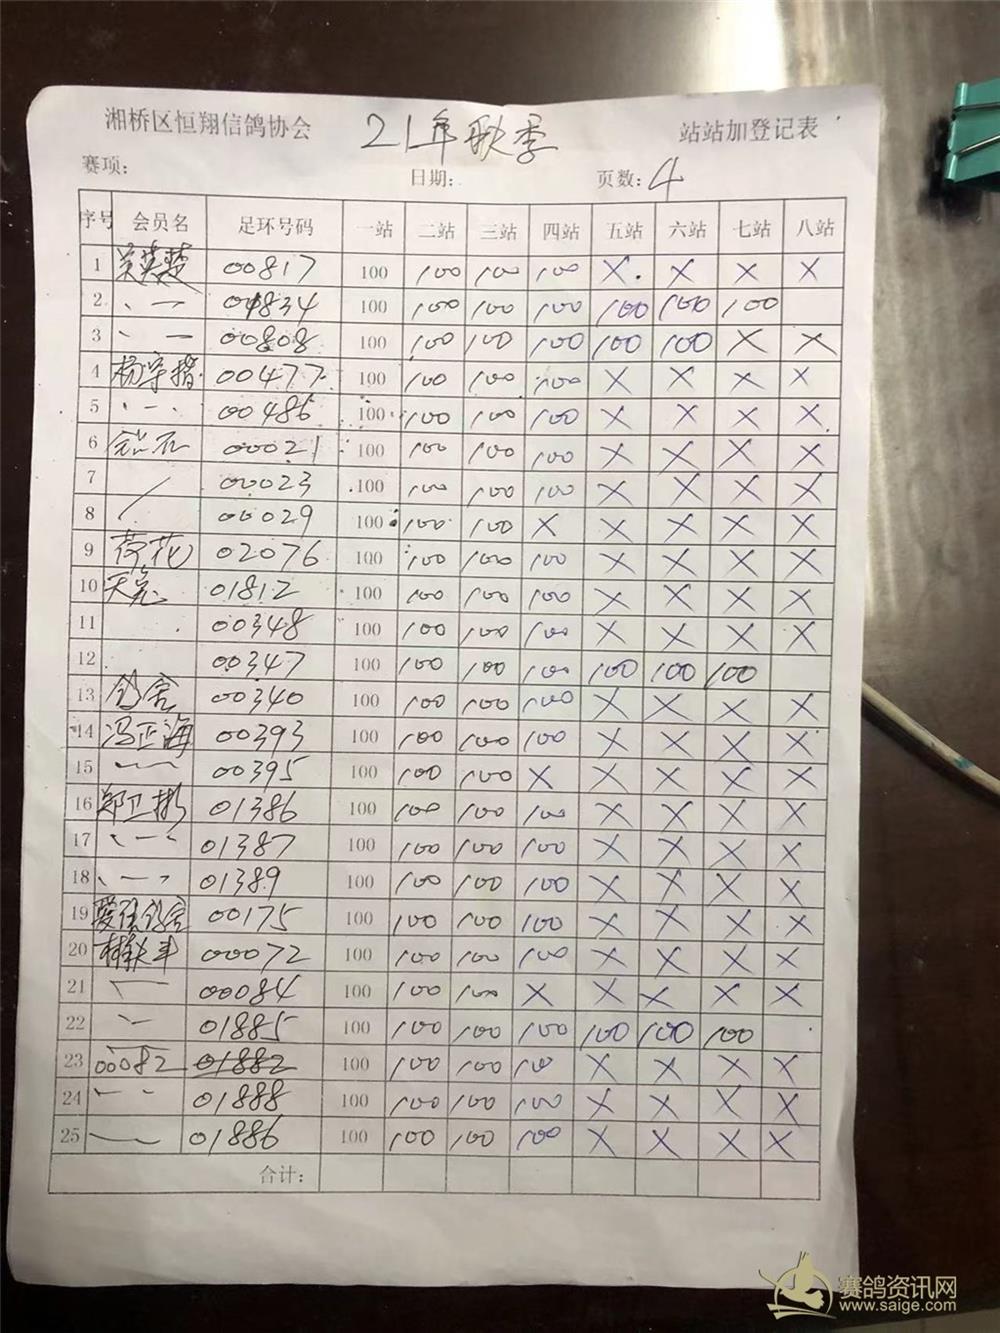 湘桥区恒翔信鸽协会 21年秋季 站站加登记表
赛项: 日期: 页数:4
序号 会员名 足环号码 一站 二站 三站 四站 五站 六站 七站 八站
1 吴英楚 00817 100 100 100 100 X X X X
2 、一 01834 100 100 100 100 100 100 100
3 、一 00808 100 100 100 100 100 100 X X
4 杨宇楷 00477 100 100 100 100 X X X X
5 、一、 00486 100 100 100 100 X X X X
6 00021 100 100 100 100 X X X X
7 00023 100 100 100 100 X X X X
8 00029 100 100 100 X X X X X
9 荷花 02076 100 100 100 100 X X X X
10 天宠 01812 100 100 100 100 X X X X
11 00348 100 100 100 100 X X X X
12 00347 100 100 100 100 100 100 100
13 鸽舍 00340 100 100 100 100 X X X X
14 冯正海 00393 100 100 100 100 X X X X
15 00395 100 100 100 X X X X X
16 郑卫彬 01386 100 100 100 100 X X X X
17 、一、 01387 100 100 100 100 X X X X
18 、一、 01389 100 100 100 100 X X X X
19 鸽舍 00175 100 100 100 100 X X X X
20 00072 100 100 100 100 X X X X
21 00084 100 100 100 X X X X X
22 01885 100 100 100 100 100 100 100
23 00082 01882 100 100 100 100 X X X X
24 01888 100 100 100 100 X X X X
25 01886 100 100 100 100 X X X X
合计:
赛鸽资讯网
www.saige.com